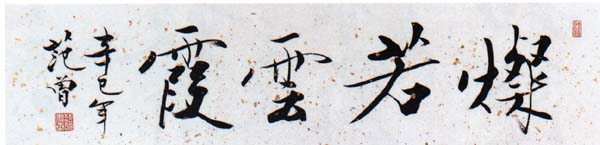 燦若雲霞
辛巳年
范曾